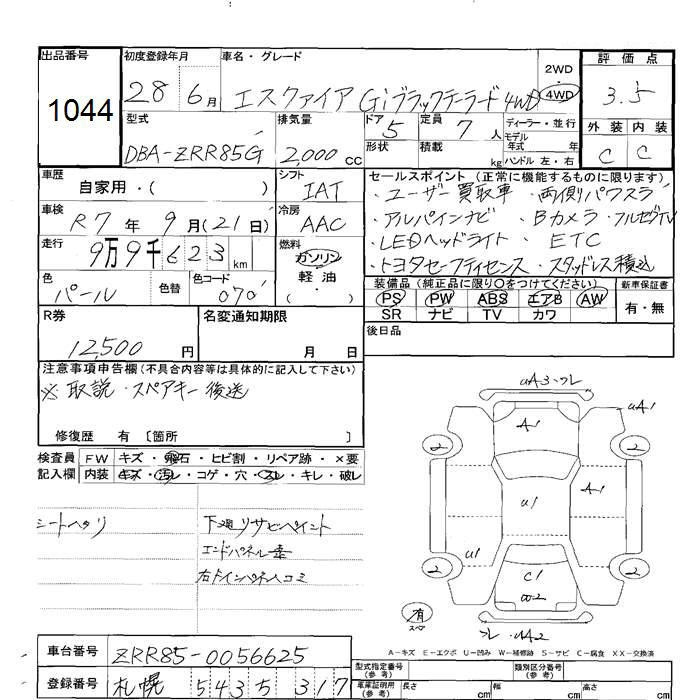 出品番号
1044
初度登録年月
28 6月
車名・グレード
エスクァイア Giブラックテーラード 4WD
2WD
・
4WD
評価点
3.5
外装 内装
C C
型式
DBA-ZRR85G
排気量
2,000 cc
ドア
5
定員
7 人
ディーラー・並行
モデル
年式 年
ハンドル 左・右
形状
積載
kg
車歴
自家用・( )
シフト
IAT
車検
R7年 9月(21日)
冷房
AAC
走行
9万9千623 km
燃料
ガソリン
軽油
・( )
色
パール
色替
色コード
070
セールスポイント (正常に機能するものに限ります)
・ユーザー買取車 ・両側パワスラ
・アルパインナビ ・Bカメラ・フルセグTV
・LEDヘッドライト ・ETC
・トヨタセーフティセンス ・スタッドレス積込
装備品 (純正品に限り○をつけてください)
PS PW ABS エアB AW
SR ナビ TV カワ
新車保証書
有・無
後日品
R券
12,500 円
名変通知期限
月 日
注意事項申告欄 (不具合内容等は具体的に記入して下さい)
※取説・スペアキー後送
修復歴 有 〔箇所 〕
検査員
記入欄
FW キズ・飛石・ヒビ割・リペア跡・×要
内装 キズ・汚レ・コゲ・穴・スレ・キレ・破レ
シートヘタリ
下廻リサビペイント
エンドパネル歪
右ドインパネ凹コミ
uA3・フレ
A1
uA1
2
2
U1
A1
U1
2
2
C1
W2
有
スペア
フレ uA2
A-キズ E-エクボ U-凹み W-補修跡 S-サビ C-腐食 XX-交換済
車台番号
ZRR85-0056625
登録番号
札幌 543 317
型式指定番号
(参考)
類別区分番号
(参考)
車庫証明用
(参考)
長さ cm
幅 cm
高さ cm